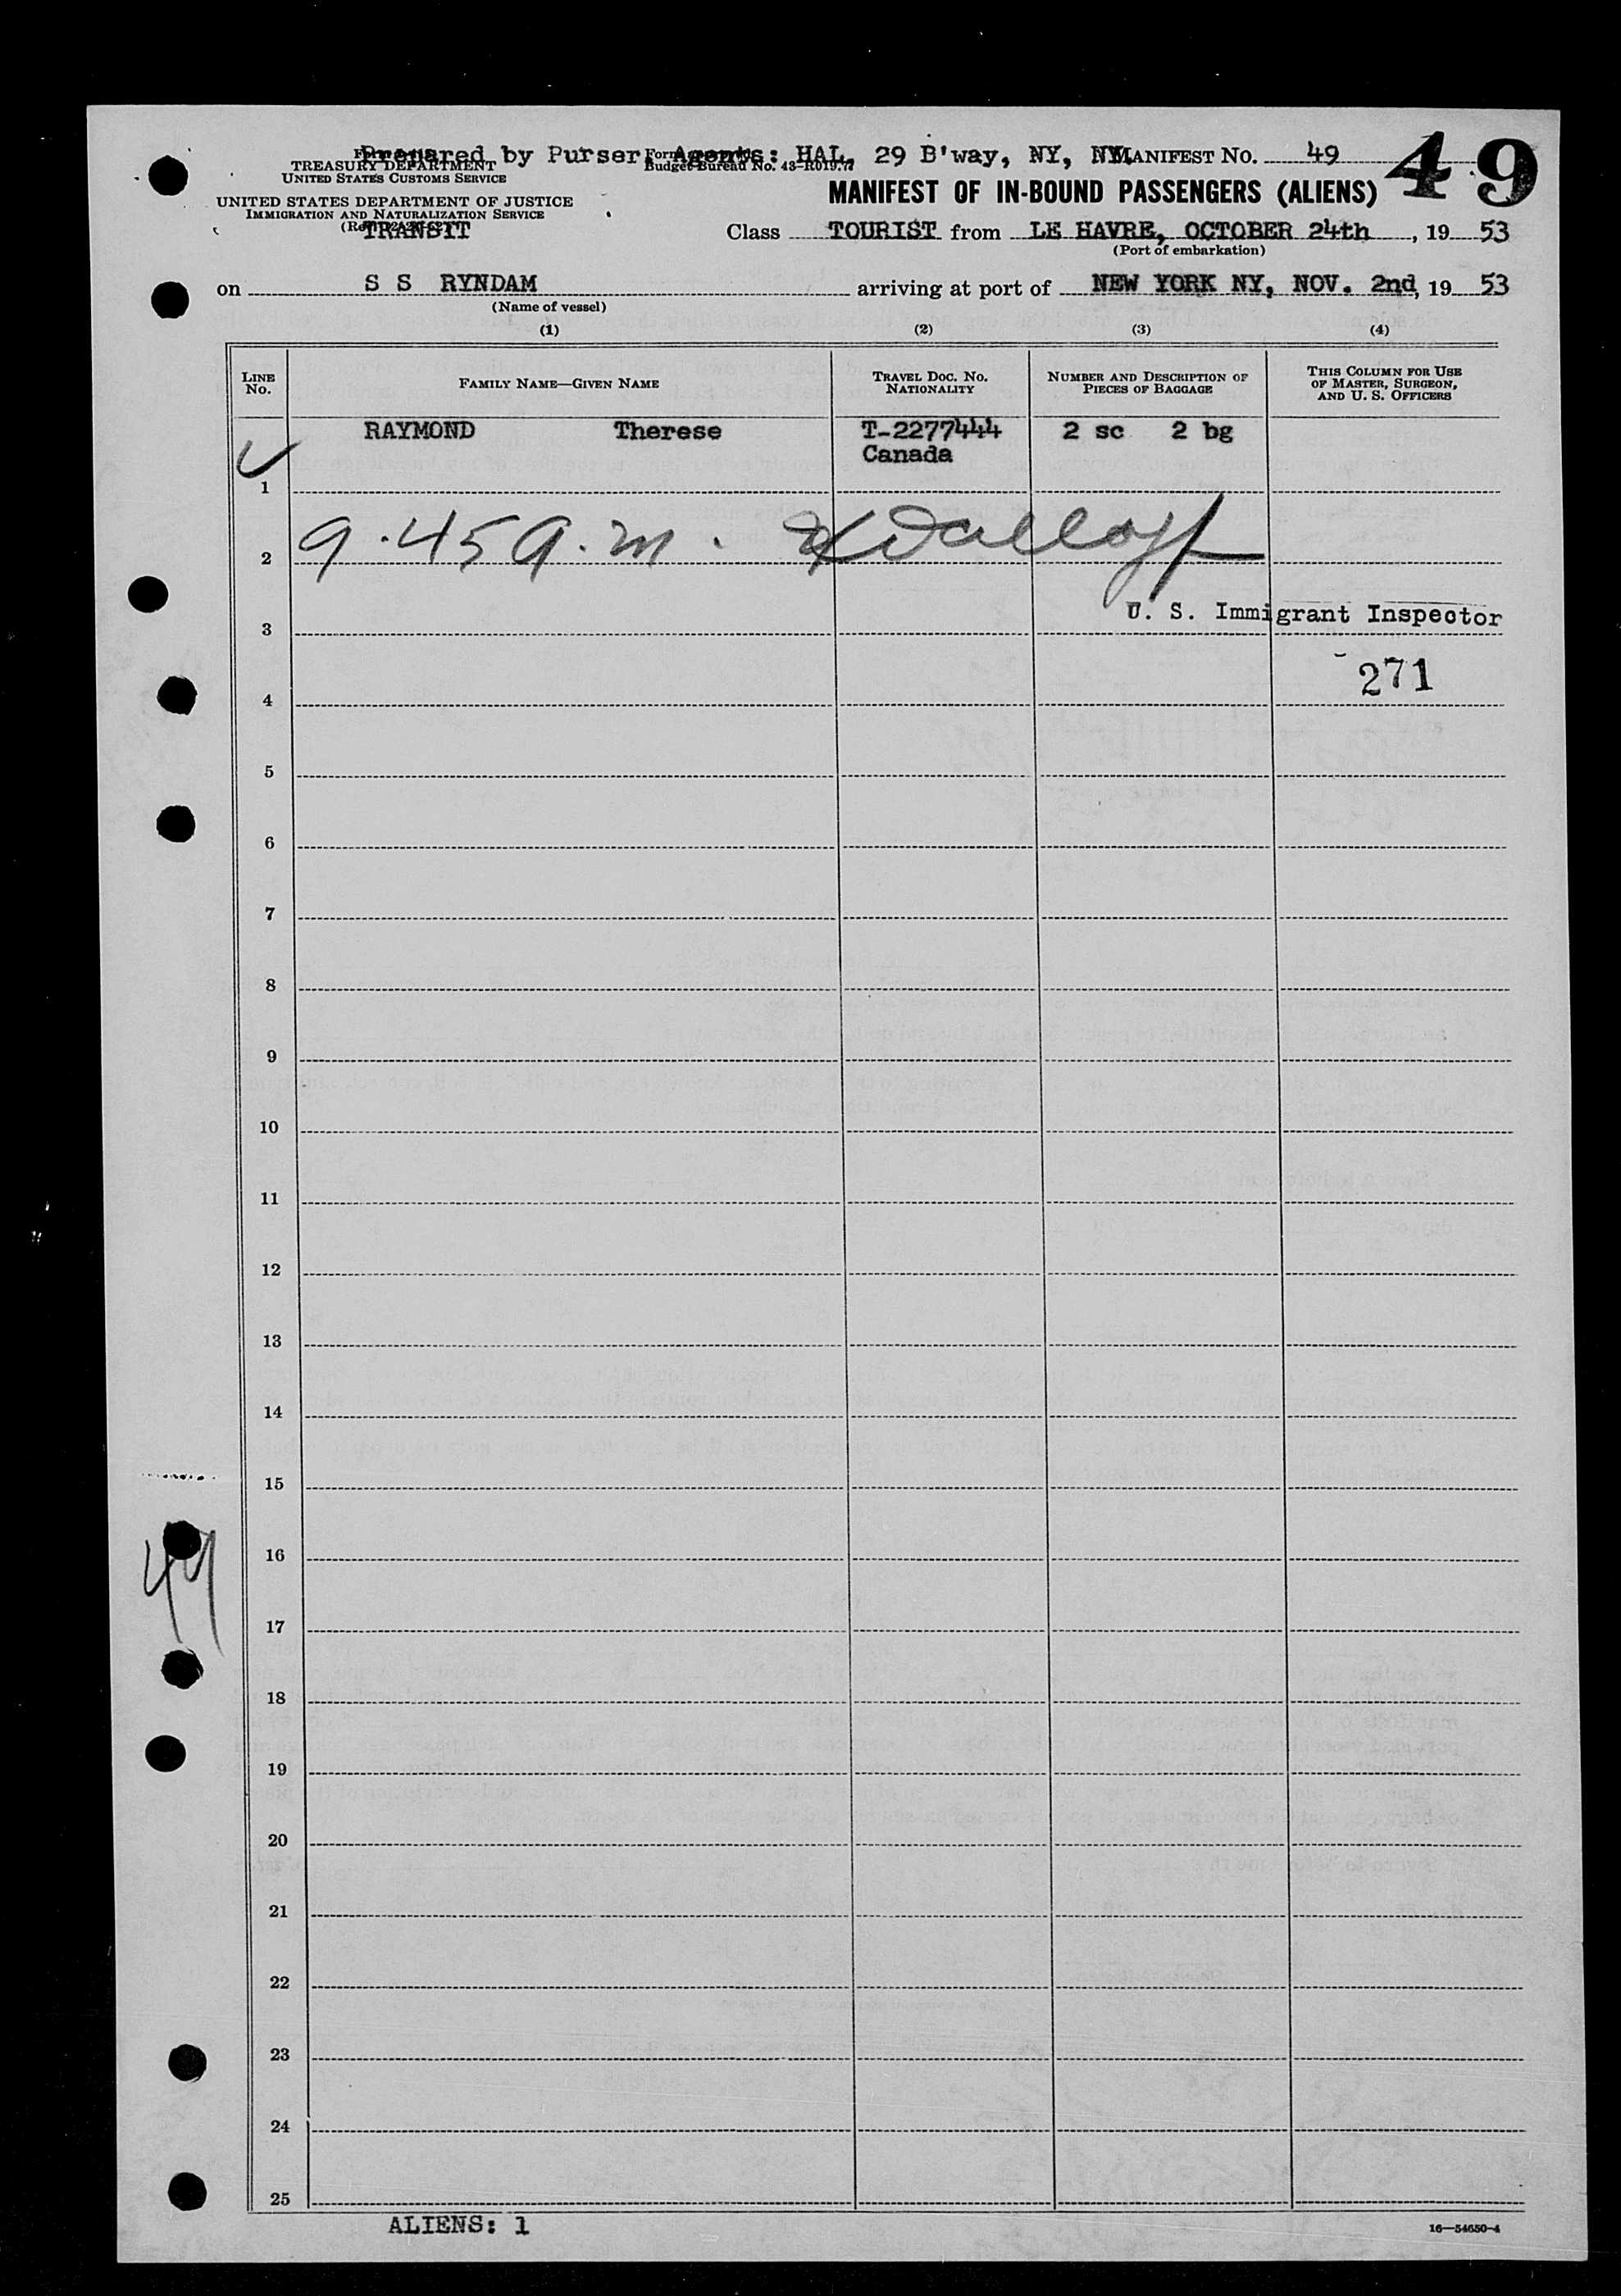 Prepared by Purser, Agents: HAL, 29 B'way, NY, NY. MANIFEST No. 49
49
TREASURY DEPARTMENT
UNITED STATES CUSTOMS SERVICE
Budget Bureau No. 43-R019.7
UNITED STATES DEPARTMENT OF JUSTICE
IMMIGRATION AND NATURALIZATION SERVICE
MANIFEST OF IN-BOUND PASSENGERS (ALIENS)
TRANSIT
Class TOURIST from LE HAVRE, OCTOBER 24th, 19 53
(Port of embarkation)
on S S RYNDAM arriving at port of NEW YORK NY, NOV. 2nd, 19 53
(Name of vessel)
(1) (2) (3) (4)
LINE No. FAMILY NAME—GIVEN NAME TRAVEL DOC. No. NATIONALITY NUMBER AND DESCRIPTION OF PIECES OF BAGGAGE THIS COLUMN FOR USE OF MASTER, SURGEON, AND U. S. OFFICERS
RAYMOND Therese T-2277444 2 sc 2 bg
Canada
1
2 9.45 a.m.
U. S. Immigrant Inspector
3
271
4
5
6
7
8
9
10
11
12
13
14
15
49
16
17
18
19
20
21
22
23
24
25
ALIENS: 1
16—54650-4